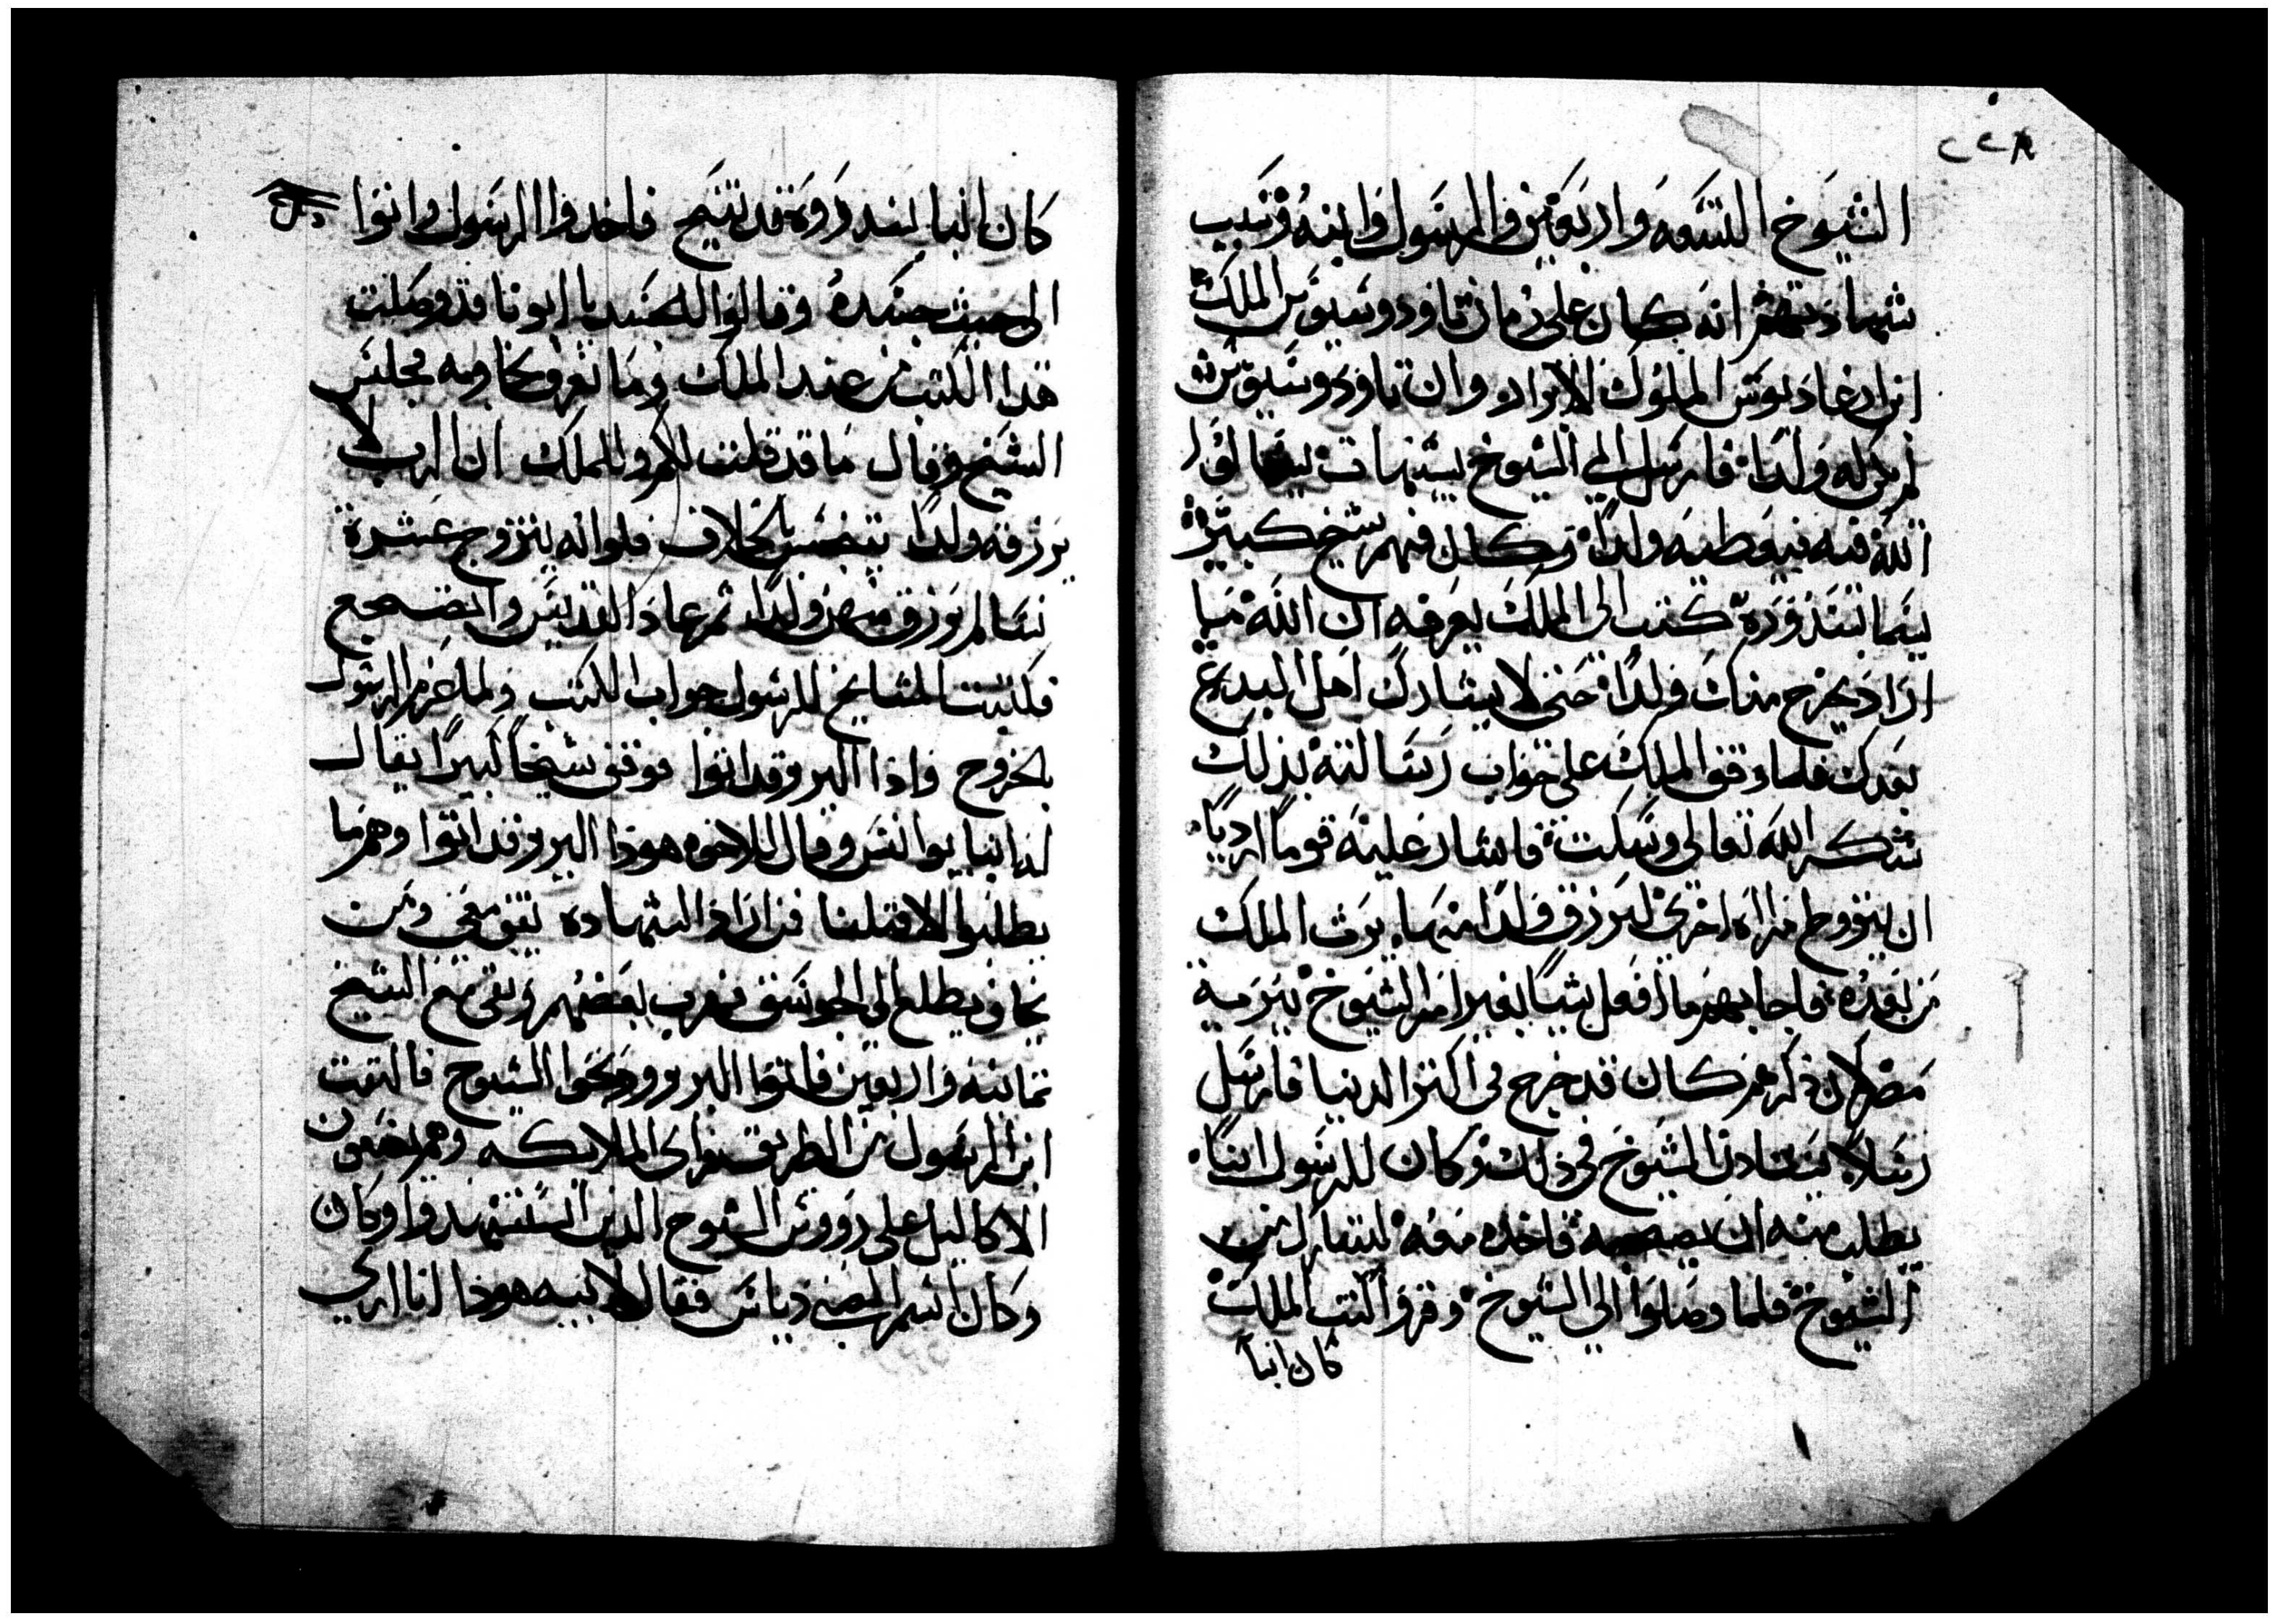 ٢٢٨
الشيوخ التسعه واربعين والرسول وابنه وسبب
شهادتهم انه كان على زمان تاودوسيوس الملك
ابن ارغاديوس الملوك الابرار وان تاودوسيوس
لم يكن له ولدا فارسل الي الشيوخ يسالوا
الله فيه فيعطيه ولدا وكان فيهم شيخ كبير
كتب الي الملك يعرفه ان الله ما
اراد يخرج منك ولدا حتى لا يشارك اهل البدع
بعدك فلما وقف الملك على جواب رسالته بذلك
شكر الله تعالى وسكت فاشار عليه قوما ارديا
ان يتزوج مراه اخرى ليرزق ولدا منها يرث الملك
من بعده فاجابهم ما افعل شيا بغير امر الشيوخ ببرية
مصر لان ذكرهم كان قد خرج في اكثر الدنيا فارسل
رسلا يستاذن الشيوخ في ذلك وكان للرسول ابنا
يطلب منه ان يصحبه فاخده معه ليتبارك من
الشيوخ فلما وصلوا الي الشيوخ وقروا كتب الملك
كان انبا
كان انبا قد تنيح فاخدوا الرسول واتوا
الى حيث جسده وقالوا للجسد يا ابونا قد وصلت
هدا الكتب من عند الملك وما نعرف نجاوبه فجلس
الشيخ وقال ما قد قلت لكم قولوا للملك ان الرب لا
يرزقه ولدا يتنجس بالخلاف فلو انه يتزوج عشرة
نسا لم يرزق منهن ولدا ثم عاد القديس وانضجع
فكتبت المشايخ للرسول جواب الكتب ولما عزم الرسول
بالخروج واذا البربر قد اتوا فوقف شيخا كبيرا يقال
له انبا يوانس وقال للاخوه هوذا البربر قد اتوا وهم ما
يطلبوا الا قتلنا فمن اراد الشهاده يقف معي ومن
خاف يطلع الى الجوسق فهرب بعضهم وبقى مع الشيخ
تمانيه واربعين فاتوا البربر ودبحوا الشيوخ فالتفت
ابن الرسول من الطريق فراى الملايكه وهم يضعون
الاكاليل على رووس الشيوخ الدين استشهدوا وكان
وكان اسم الصبي دياس فقال لابيه هوذا انا ارى